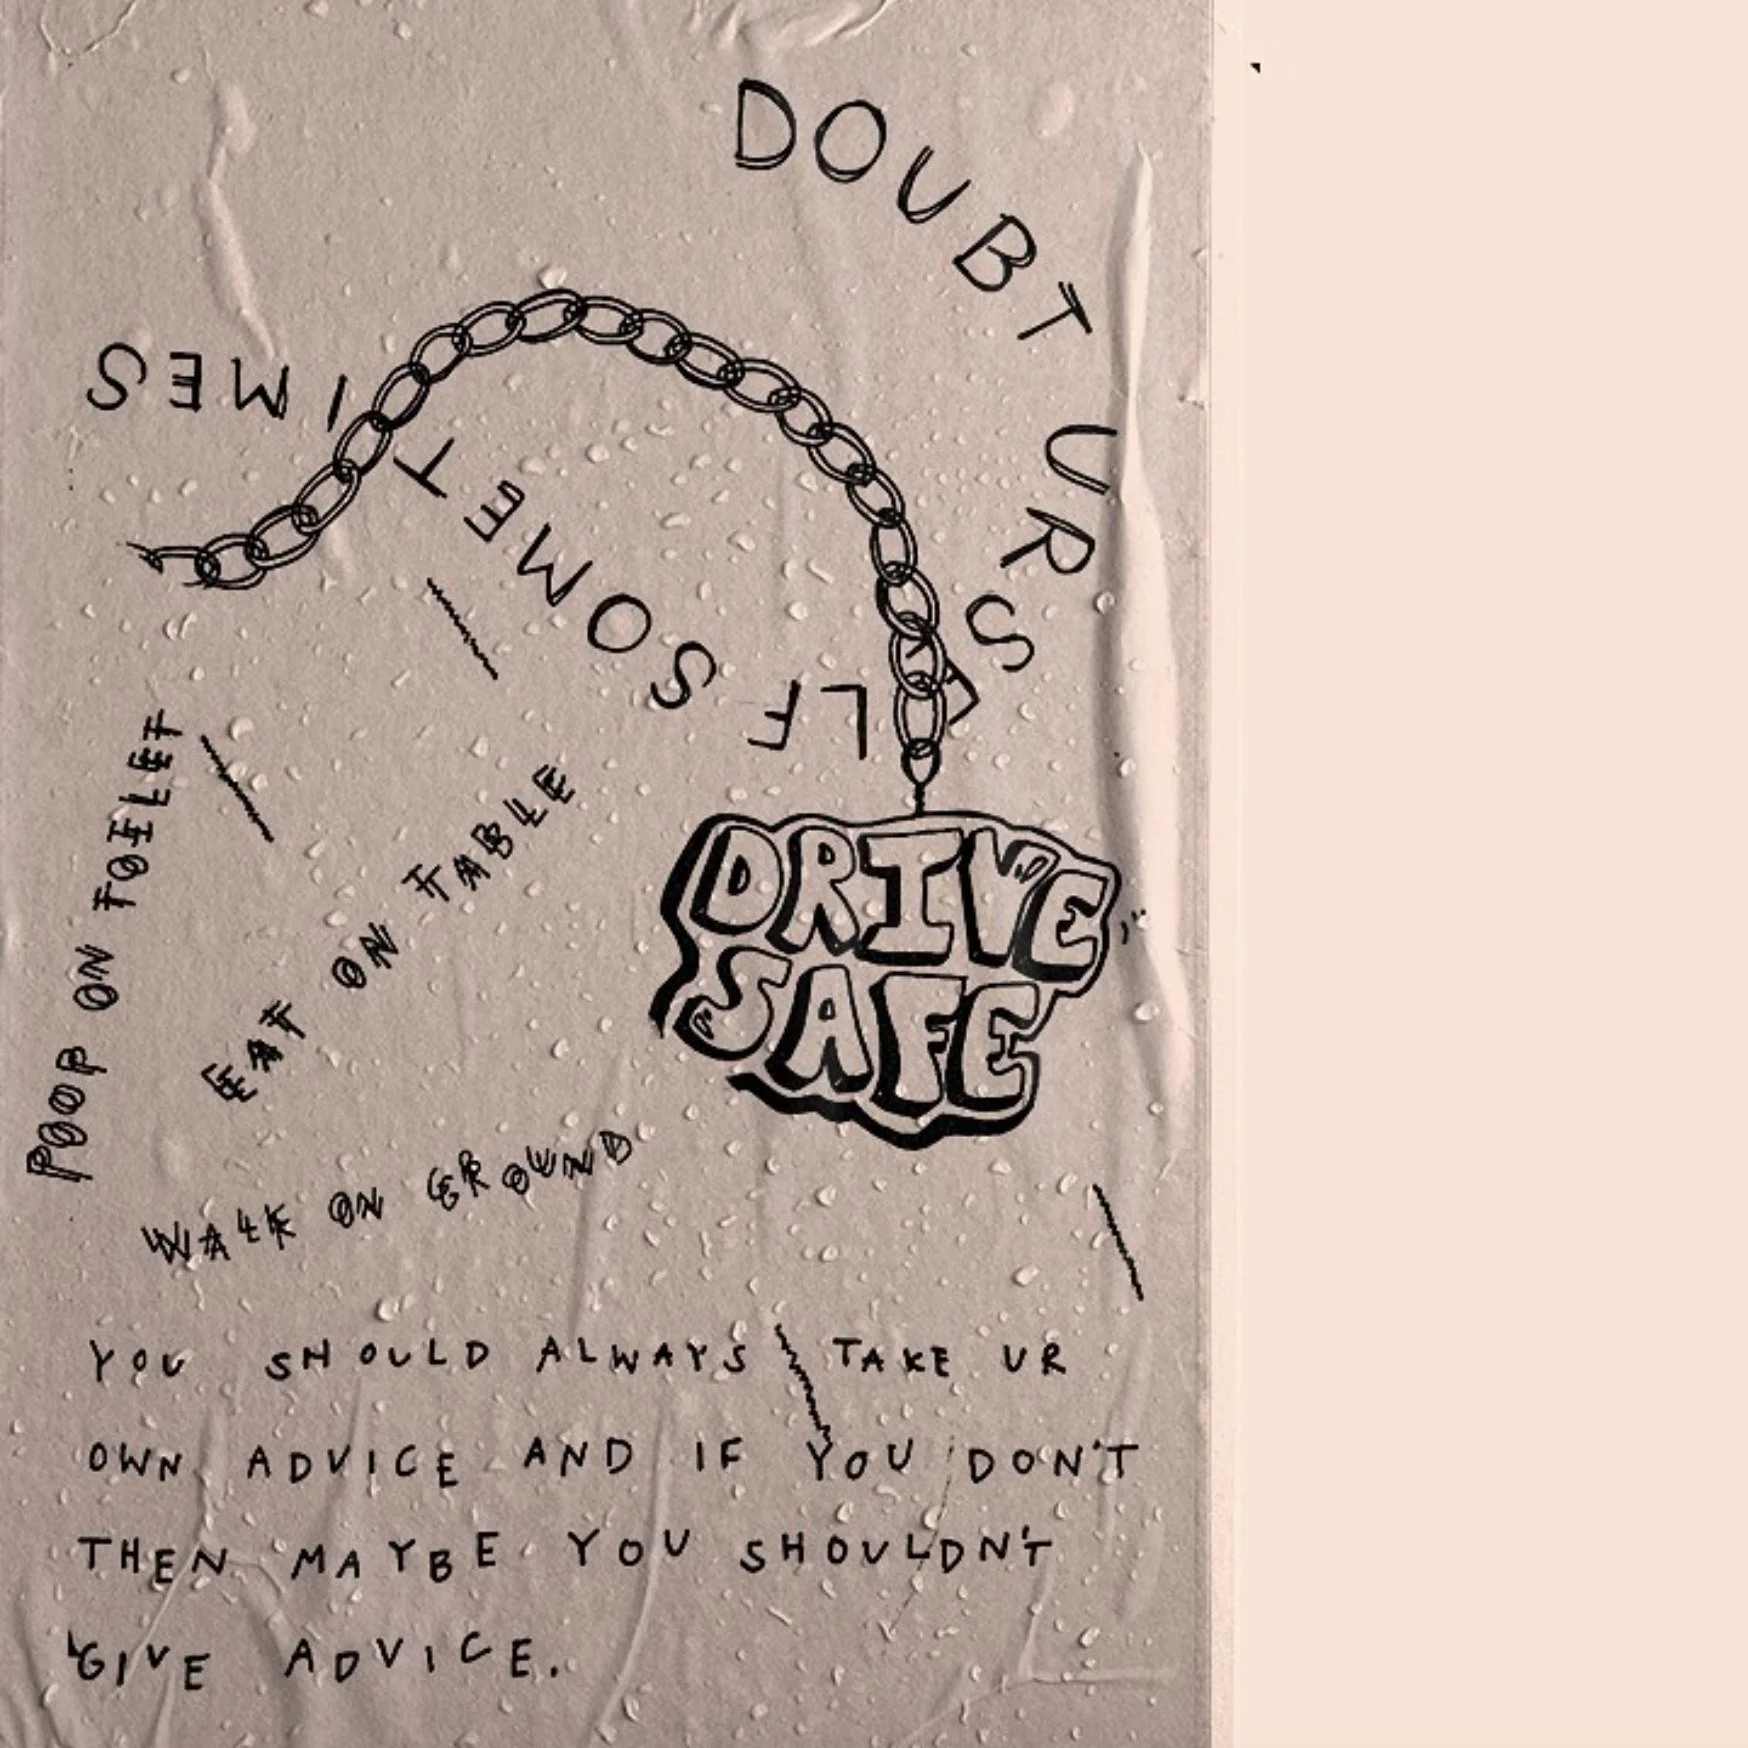 DOUBT URSELF SOMETIMES
DRIVE
SAFE
POOP ON TOILET
EAT ON TABLE
WALK ON GROUND
YOU SHOULD ALWAYS TAKE UR
OWN ADVICE AND IF YOU DON'T
THEN MAYBE YOU SHOULDN'T
GIVE ADVICE.